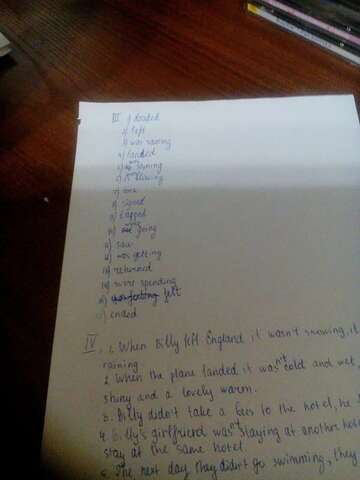 III 1) decided
2) left
3) was raining
4) landed
5) raining
6) blowing
8) signed
10) going
11) saw
12) was getting
13) returned
14) were spending
15) felt
16) ended
IV. 1. When Billy left England it wasn't snowing, it
raining.
2. When the plane landed it wasn't cold and wet,
shiny and a lovely warm.
3. Billy didn't take a bus to the hotel, he
4. Billy's girlfriend wasn't staying at another hotel
stay at the same hotel.
5. The next day they didn't go swimming, they